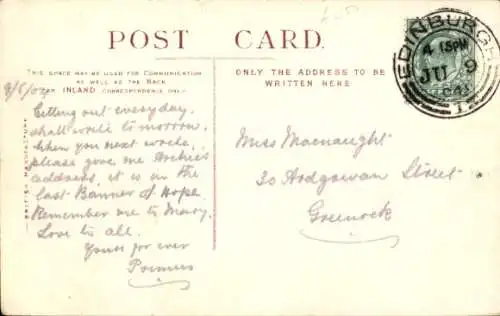 POST CARD.
THIS SPACE MAY BE USED FOR COMMUNICATION
AS WELL AS THE BACK
FOR INLAND CORRESPONDENCE ONLY
ONLY THE ADDRESS TO BE
WRITTEN HERE
BRITISH MANUFACTURE
EDINBURGH
4 15PM
JU 9
Getting out everyday.
shall write to morrow.
when you next write,
please give me Archie's
address, it is on the
last Banner of Hope.
Remember me to Mary.
Love to all.
Yours for ever
Miss Macnaught
30 Ardgowan Street
Greenock